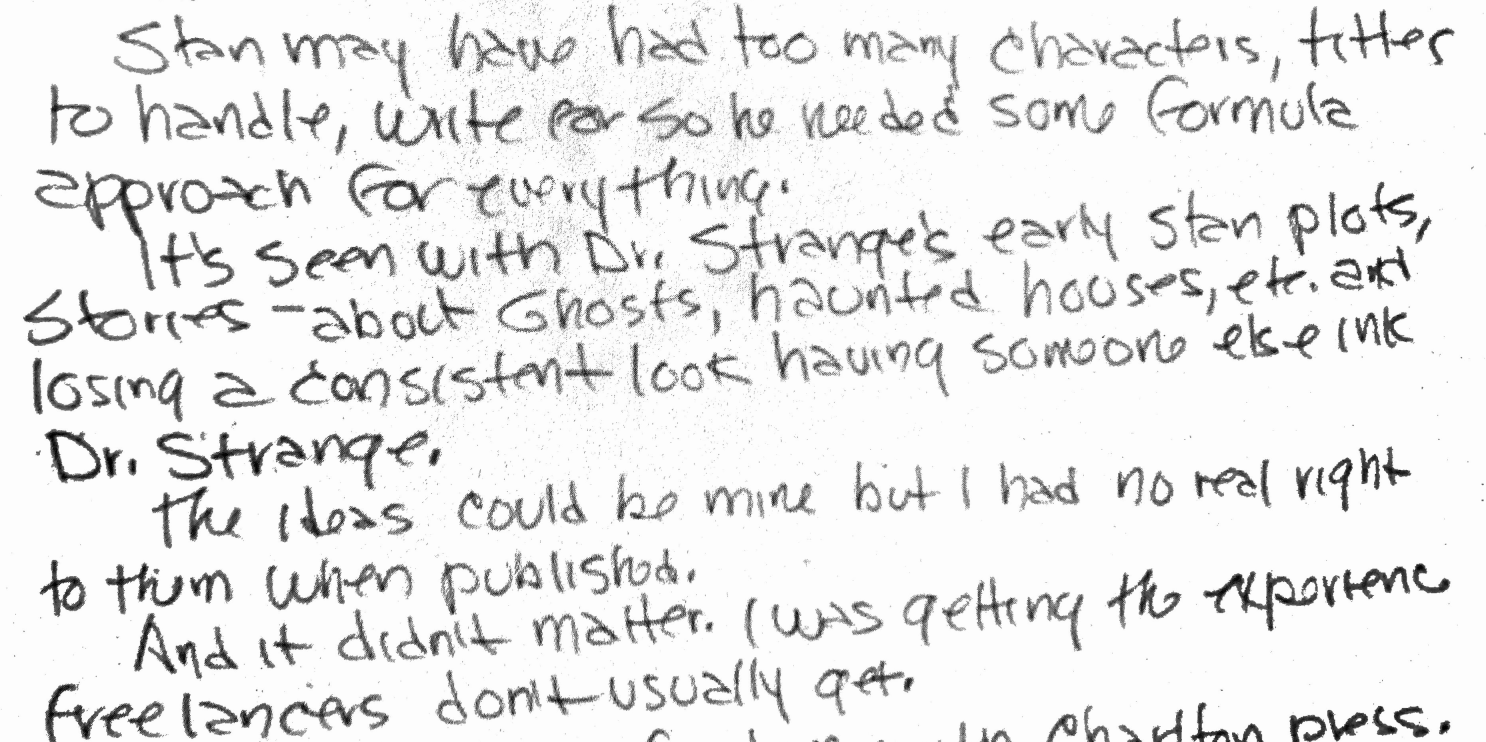 Stan may have had too many characters, titles
to handle, write for so he needed some formula
approach for everything.
It's seen with Dr. Strange's early Stan plots,
Stories - about Ghosts, haunted houses, etc. and
losing a consistent look having someone else ink
Dr. Strange.
The ideas could be mine but I had no real right
to them when published.
And it didn't matter. I was getting the experience
freelancers don't usually get.
in Charlton press.